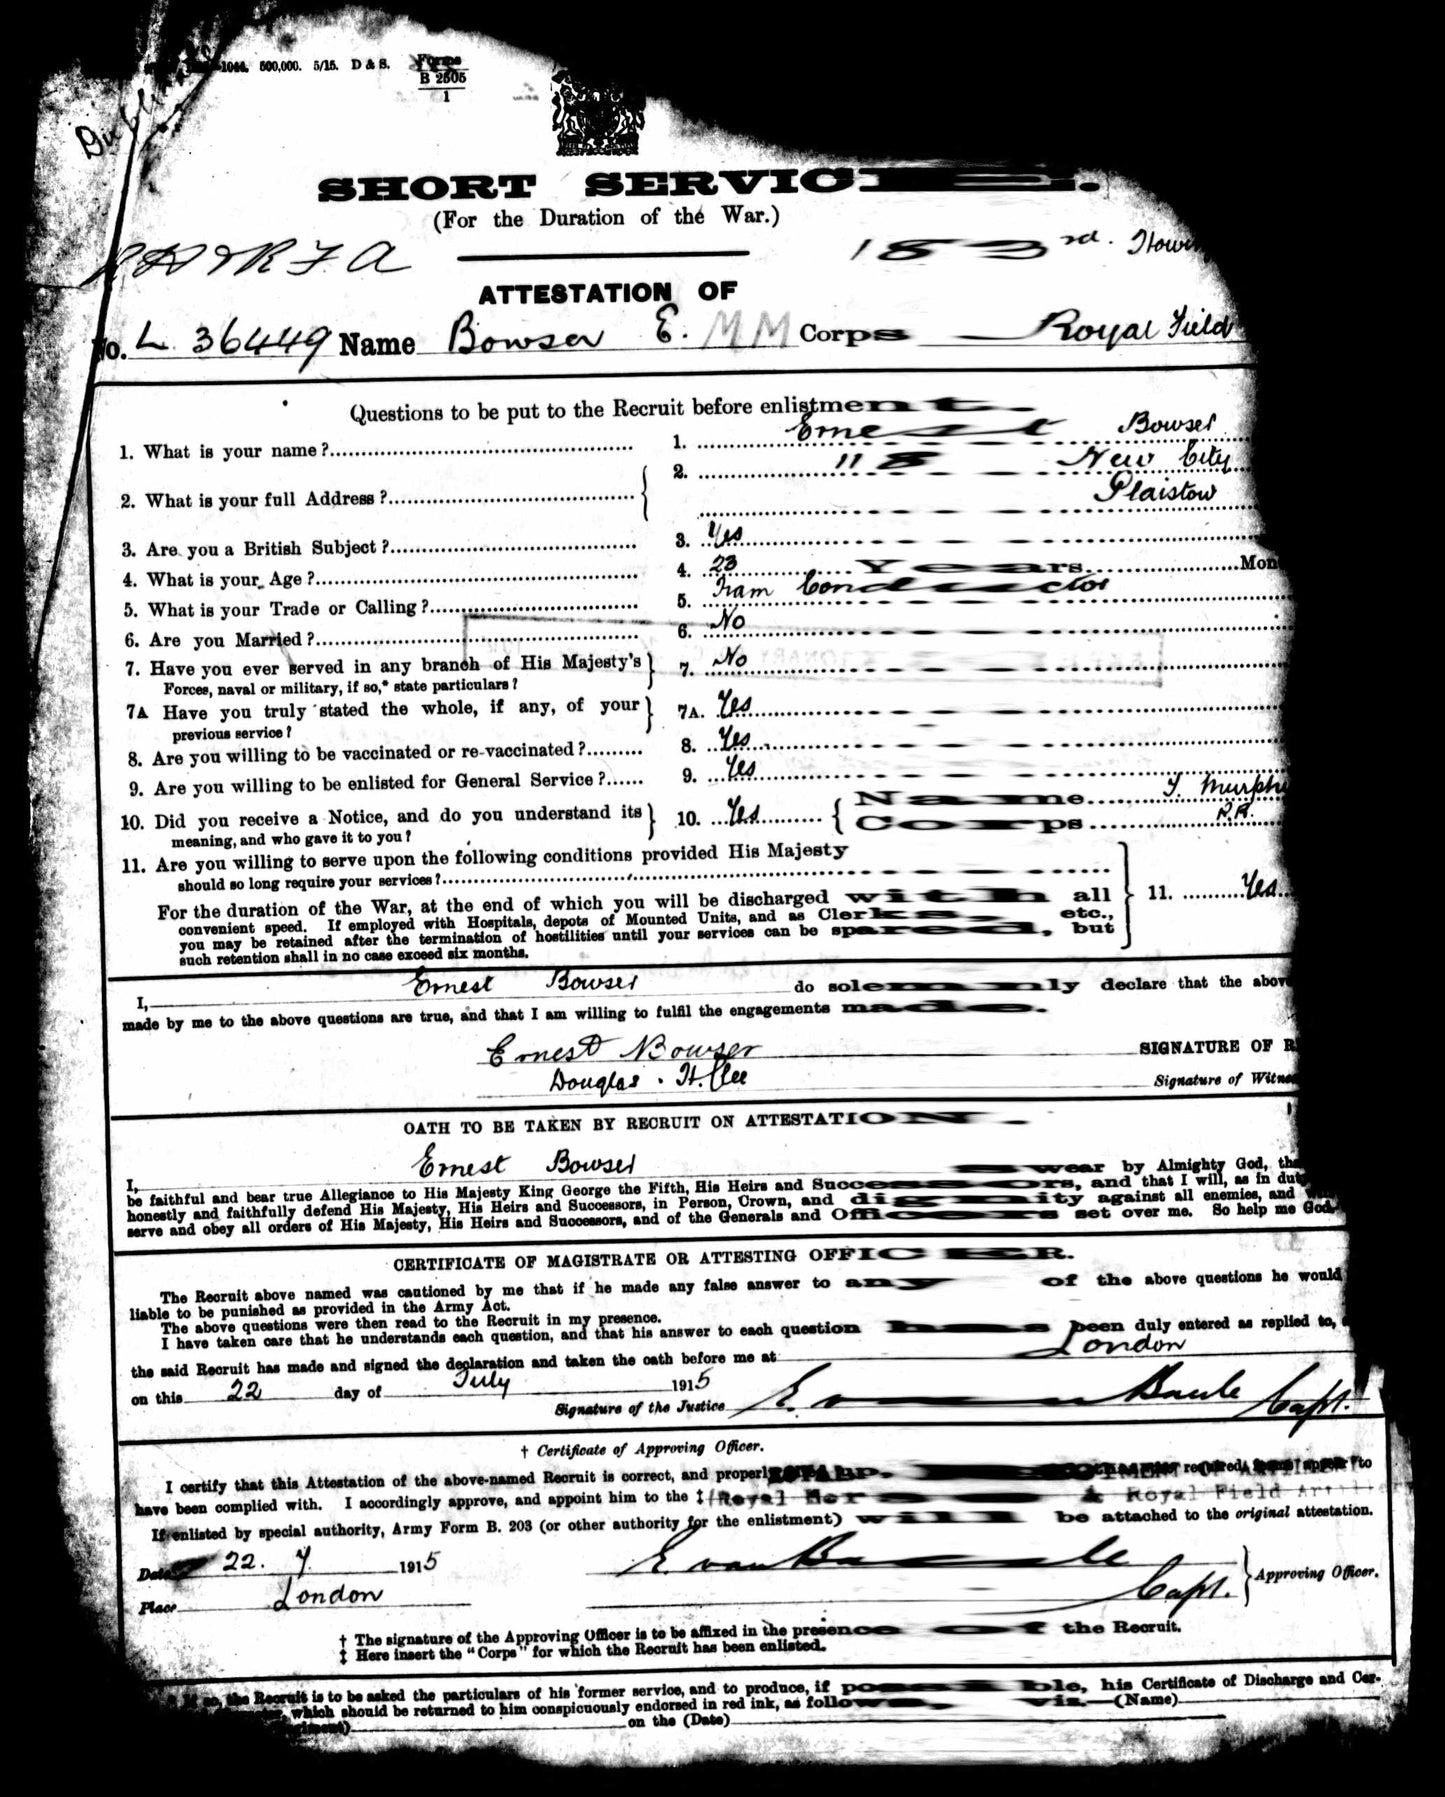 1044. 500,000. 5/15. D & S. Forms
B 2505
1
SHORT SERVICE.
(For the Duration of the War.)
R H & R F A 183rd. Howi
ATTESTATION OF
No. L 36449 Name Bowser E. MM Corps Royal Field
Questions to be put to the Recruit before enlistment.
1. What is your name? 1. Ernest Bowser
2. What is your full Address? 2. 118 New City
Plaistow
3. Are you a British Subject? 3. Yes
4. What is your Age? 4. 23 Years Mon
5. What is your Trade or Calling? 5. Tram Conductor
6. Are you Married? 6. No
7. Have you ever served in any branch of His Majesty's 7. No
Forces, naval or military, if so,* state particulars?
7A Have you truly stated the whole, if any, of your 7A. Yes
previous service?
8. Are you willing to be vaccinated or re-vaccinated? 8. Yes
9. Are you willing to be enlisted for General Service? 9. Yes
10. Did you receive a Notice, and do you understand its 10. Yes Name J. Murph
meaning, and who gave it to you? Corps R.A.
11. Are you willing to serve upon the following conditions provided His Majesty
should so long require your services?
For the duration of the War, at the end of which you will be discharged with all 11. Yes
convenient speed. If employed with Hospitals, depots of Mounted Units, and as Clerks, etc.,
you may be retained after the termination of hostilities until your services can be spared, but
such retention shall in no case exceed six months.
I, Ernest Bowser do solemnly declare that the above
made by me to the above questions are true, and that I am willing to fulfil the engagements made.
Ernest Bowser SIGNATURE OF R
Douglas. H. Clee Signature of Witne
OATH TO BE TAKEN BY RECRUIT ON ATTESTATION.
I, Ernest Bowser swear by Almighty God, tha
be faithful and bear true Allegiance to His Majesty King George the Fifth, His Heirs and Successors, and that I will, as in dut
honestly and faithfully defend His Majesty, His Heirs and Successors, in Person, Crown, and dignity against all enemies, and
serve and obey all orders of His Majesty, His Heirs and Successors, and of the Generals and Officers set over me. So help me God.
CERTIFICATE OF MAGISTRATE OR ATTESTING OFFICER.
The Recruit above named was cautioned by me that if he made any false answer to any of the above questions he would
liable to be punished as provided in the Army Act.
The above questions were then read to the Recruit in my presence.
I have taken care that he understands each question, and that his answer to each question has been duly entered as replied to,
the said Recruit has made and signed the declaration and taken the oath before me at London
on this 22 day of July 1915
Signature of the Justice E. van Baerle Capt.
† Certificate of Approving Officer.
I certify that this Attestation of the above-named Recruit is correct, and properly
have been complied with. I accordingly approve, and appoint him to the ‡ Royal Horse & Royal Field Artillery
If enlisted by special authority, Army Form B. 203 (or other authority for the enlistment) will be attached to the original attestation.
Date 22. 7. 1915 E. van Baerle
Place London Capt. Approving Officer.
† The signature of the Approving Officer is to be affixed in the presence of the Recruit.
‡ Here insert the "Corps" for which the Recruit has been enlisted.
* If so, the Recruit is to be asked the particulars of his former service, and to produce, if possible, his Certificate of Discharge and Cer-
which should be returned to him conspicuously endorsed in red ink, as follows, viz.—(Name)
on the (Date)